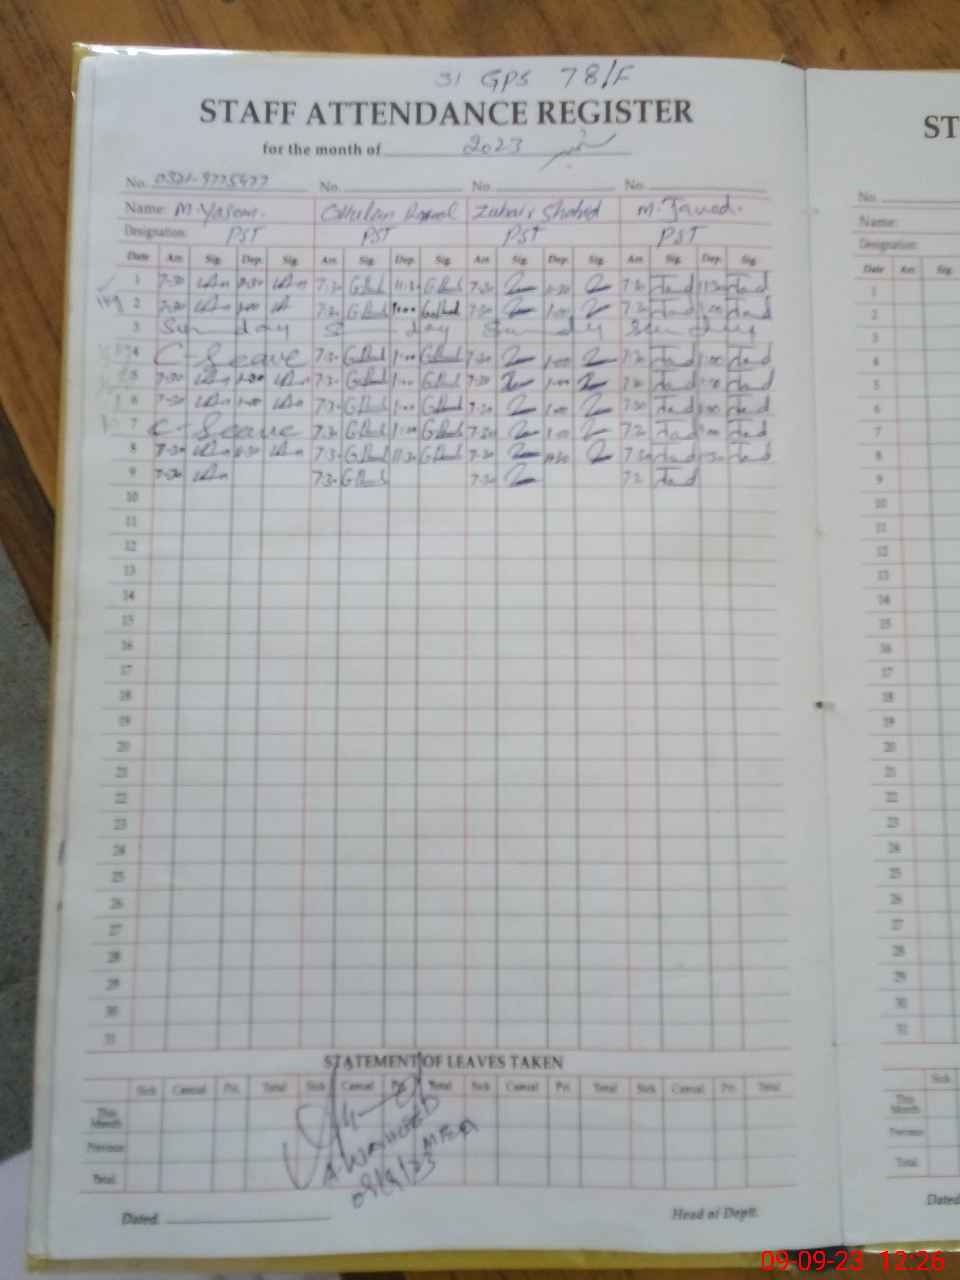 GPS 78/F
STAFF ATTENDANCE REGISTER ST
for the month of 2023 ستمبر
No. 0321-9775477 No. No. No. No.
Name: M. Yaseen. Ghulam Rasool Zubair Shahid M. Javed. Name:
Designation: PST PST PST PST Designation:
Date Arr. Sig. Dep. Sig. Arr. Sig. Dep. Sig. Arr. Sig. Dep. Sig. Arr. Sig. Dep. Sig. Date Arr. Sig.
1 7-30 11-30 7:30 11:30 7-30 11-30 7:30 11:30 1
2 7-30 1-00 7:30 1:00 7-30 1-00 7:30 1:00 2
3 Sunday Sunday Sunday Sunday 3
4 C-Leave 7:30 1:00 7-30 1-00 7:30 1:00 4
5 7-30 1-00 7:30 1:00 7-30 1-00 7:30 1:00 5
6 7-30 1-00 7:30 1:00 7-30 1-00 7:30 1:00 6
7 C-Leave 7:30 1:00 7-30 1-00 7:30 1:00 7
8 7-30 11-30 7:30 11:30 7-30 11-30 7:30 11:30 8
9 7-30 7:30 7-30 7:30 9
10 10
11 11
12 12
13 13
14 14
15 15
16 16
17 17
18 18
19 19
20 20
21 21
22 22
23 23
24 24
25 25
26 26
27 27
28 28
29 29
30 30
31 31
STATEMENT OF LEAVES TAKEN
Sick Casual Pri. Total Sick Casual Pri. Total Sick Casual Pri. Total Sick Casual Pri. Total Sick
This Month This Month
Previous Previous
Total Total
A WAHEED
MEA
09/9/23
Dated. Head of Deptt. Dated
09-09-23 12:26